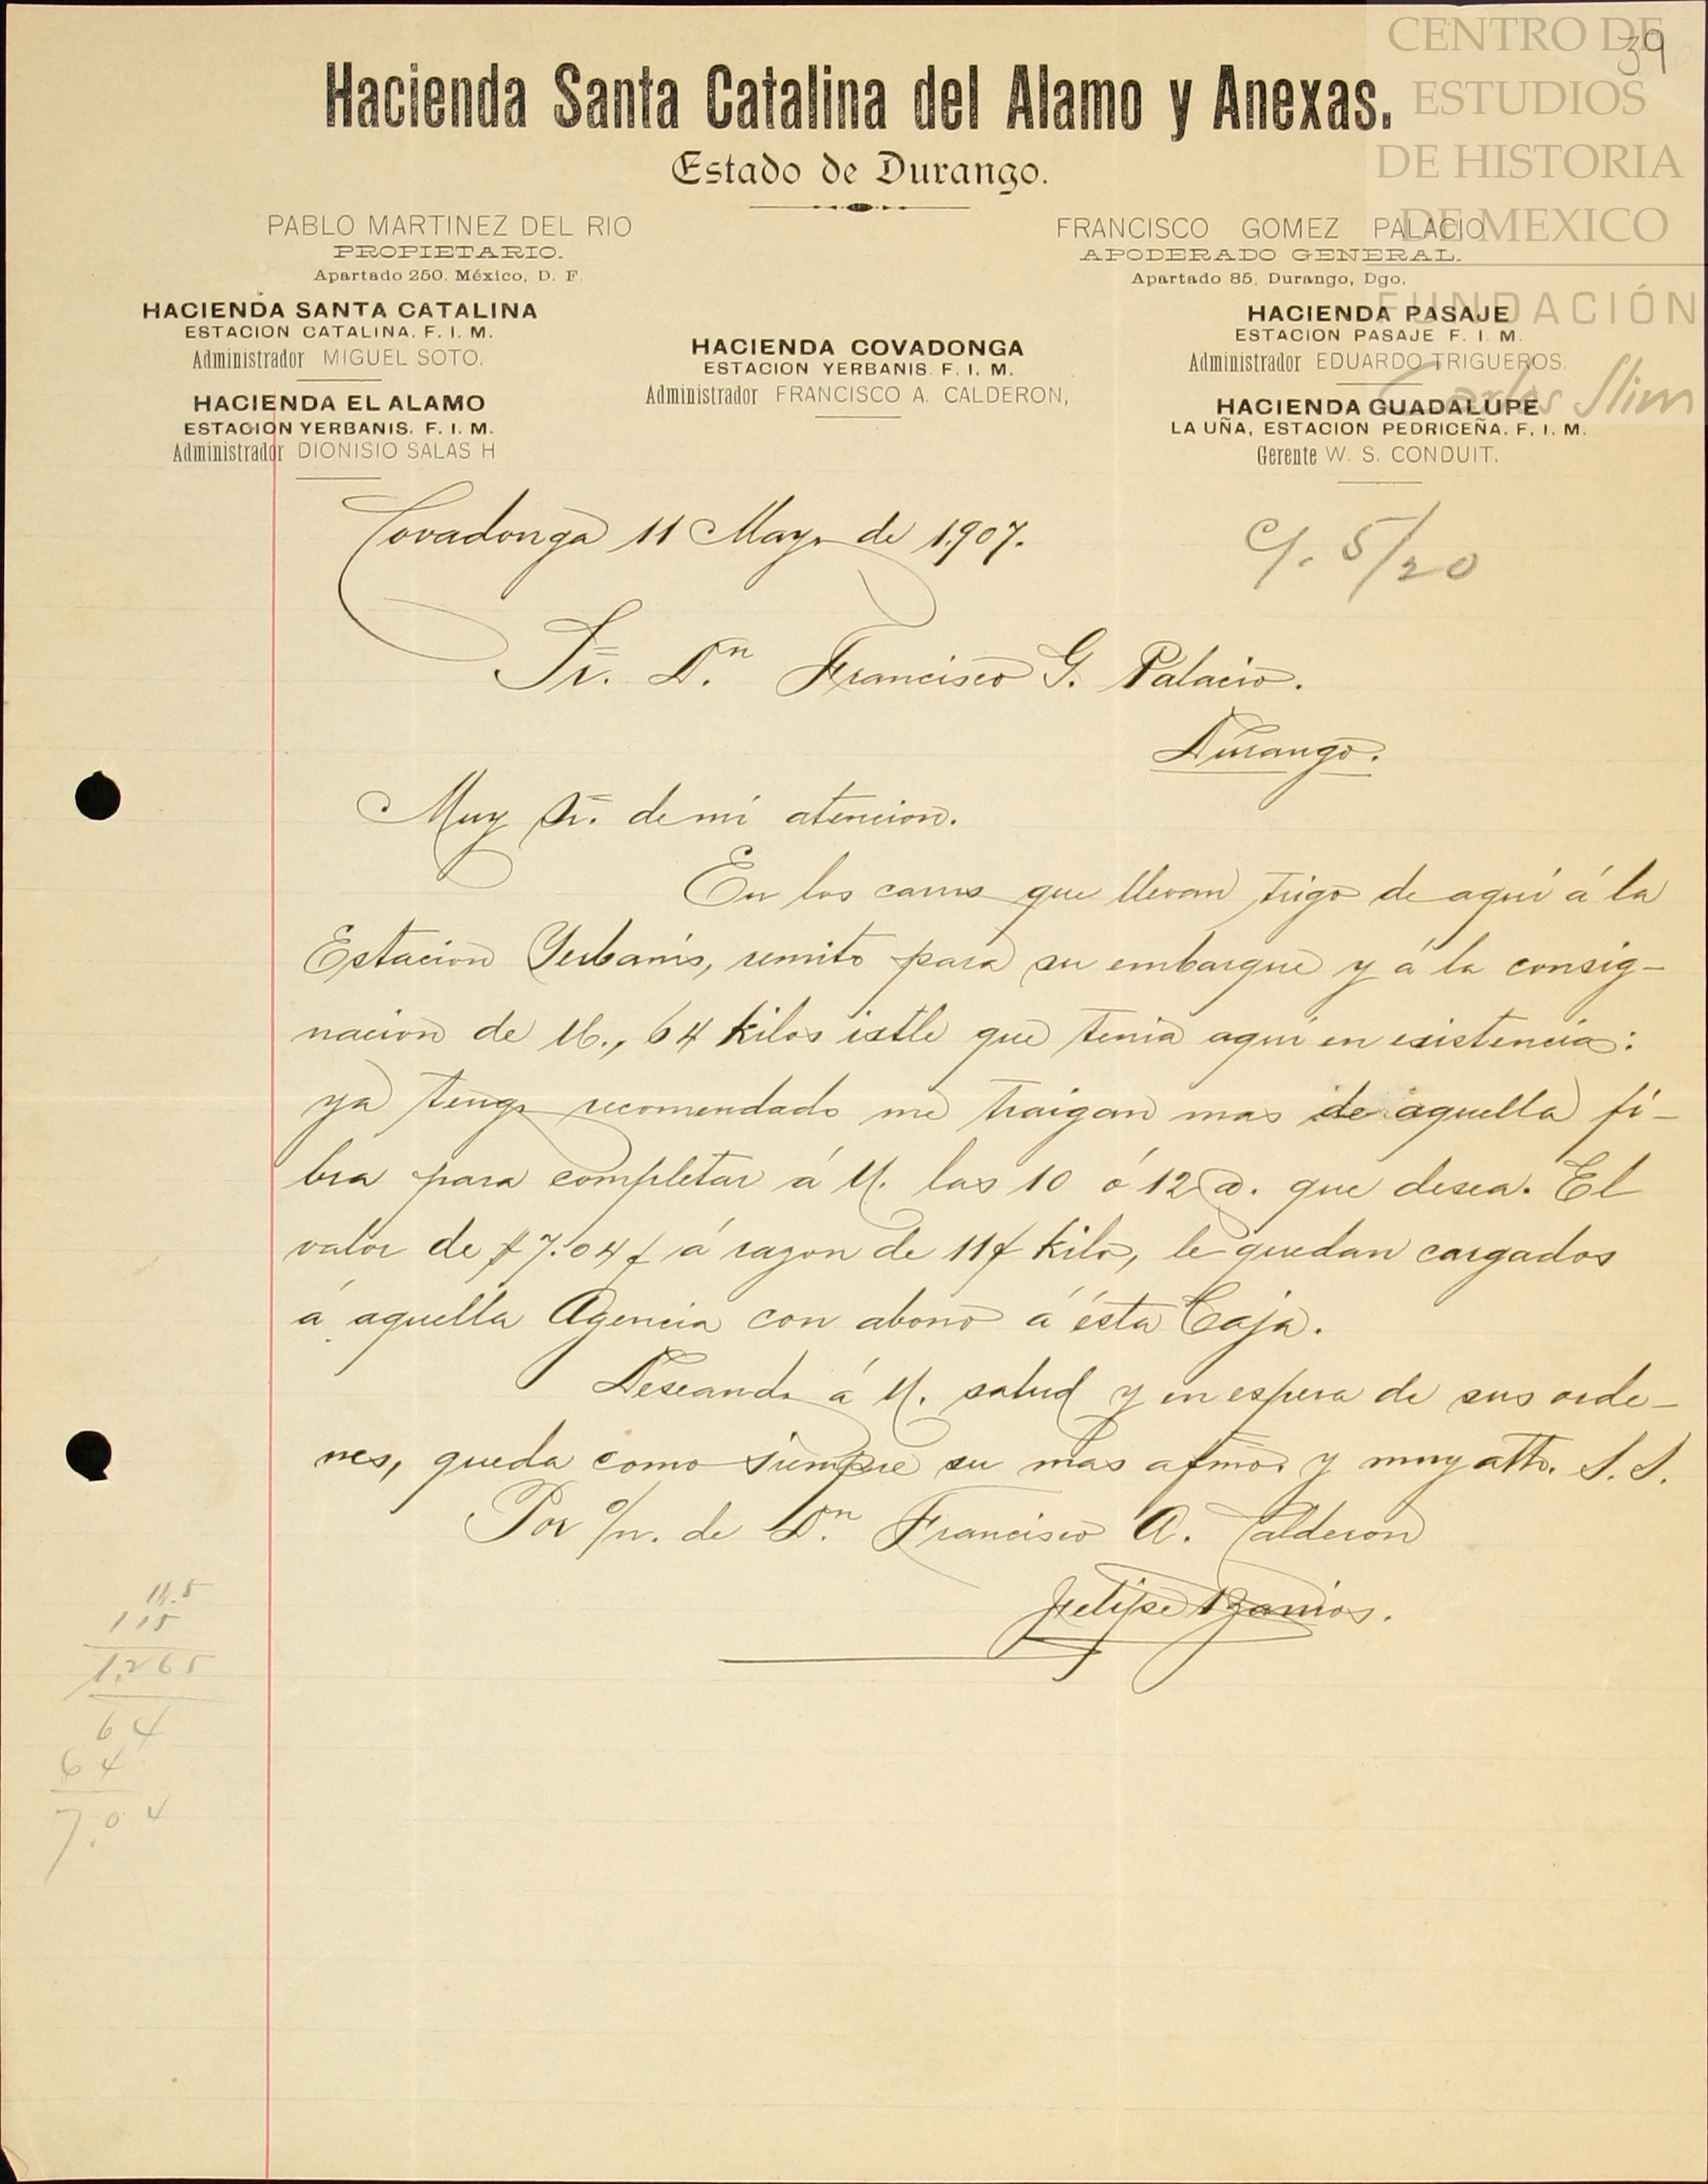 39
CENTRO DE
ESTUDIOS
DE HISTORIA
DE MEXICO
FUNDACIÓN
Carlos Slim
Hacienda Santa Catalina del Alamo y Anexas.
Estado de Durango.
PABLO MARTINEZ DEL RIO
PROPIETARIO.
Apartado 250, México, D. F.
FRANCISCO GOMEZ PALACIO
APODERADO GENERAL.
Apartado 85, Durango, Dgo.
HACIENDA SANTA CATALINA
ESTACION CATALINA. F. I. M.
Administrador MIGUEL SOTO.
HACIENDA EL ALAMO
ESTACION YERBANIS. F. I. M.
Administrador DIONISIO SALAS H
HACIENDA COVADONGA
ESTACION YERBANIS. F. I. M.
Administrador FRANCISCO A. CALDERON,
HACIENDA PASAJE
ESTACION PASAJE F. I. M.
Administrador EDUARDO TRIGUEROS.
HACIENDA GUADALUPE
LA UÑA, ESTACION PEDRICEÑA. F. I. M.
Gerente W. S. CONDUIT.
Covadonga 11 Mayo de 1.907.
C/. 5/20
Sr. Dn Francisco G. Palacio.
Durango.
Muy Sr. de mi atencion.
En los carros que llevan trigo de aquí á la
Estacion Yerbanis, remito para su embarque y á la consig-
nacion de U., 64 kilos ixtle que tenia aqui en existencia:
ya tengo recomendado me traigan mas de aquella fi-
bra para completar á U. las 10 ó 12 @. que desea. El
valor de $7.04 ¢ á razon de 11¢ kilo, le quedan cargados
á aquella Agencia con abono á ésta Caja.
Deseando á U. salud y en espera de sus orde-
nes, queda como siempre su mas afmo. y muy atto. S. S.
Por o/n. de Dn Francisco A. Calderon
Felipe
11.5
115
1.265
64
64
7.04